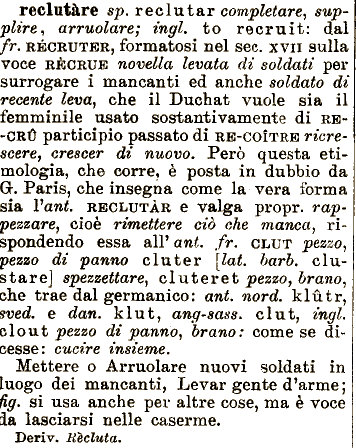 reclutàre sp. reclutar completare, sup-
plire, arruolare; ingl. to recruit: dal
fr. RÉCRUTER, formatosi nel sec. XVII sulla
voce RÈCRUE novella levata di soldati per
surrogare i mancanti ed anche soldato di
recente leva, che il Duchat vuole sia il
femminile usato sostantivamente di RE-
-CRÛ participio passato di RE-COÎTRE ricre-
scere, crescer di nuovo. Però questa eti-
mologia, che corre, è posta in dubbio da
G. Paris, che insegna come la vera forma
sia l'ant. RECLUTÀR e valga propr. rap-
pezzare, cioè rimettere ciò che manca, ri-
spondendo essa all' ant. fr. CLUT pezzo,
pezzo di panno cluter [lat. barb. clu-
stare] spezzettare, cluteret pezzo, brano,
che trae dal germanico: ant. nord. klûtr,
sved. e dan. klut, ang-sass. clut, ingl.
clout pezzo di panno, brano: come se di-
cesse: cucire insieme.
Mettere o Arruolare nuovi soldati in
luogo dei mancanti, Levar gente d'arme;
fig. si usa anche per altre cose, ma è voce
da lasciarsi nelle caserme.
Deriv. Rècluta.